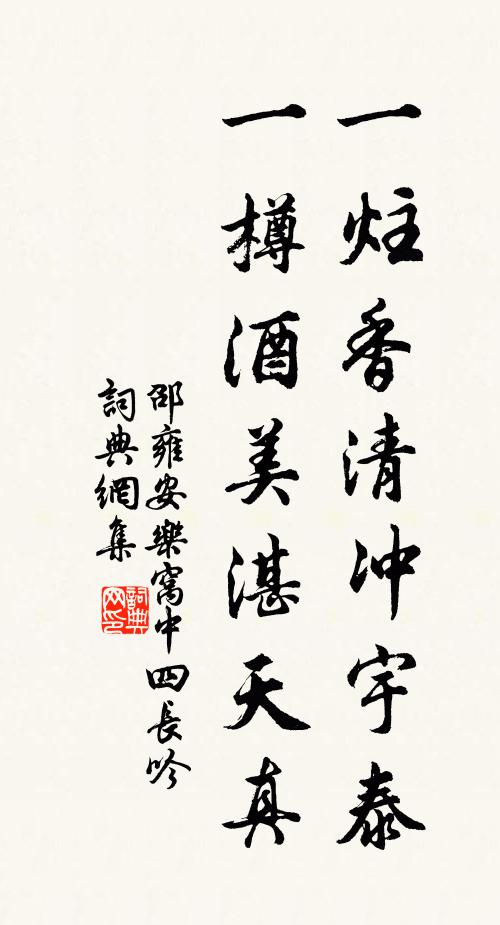 一炷香清沖宇泰
一樽酒美湛天真
邵雍安樂窩中四長吟
詞典網集
詞典网印